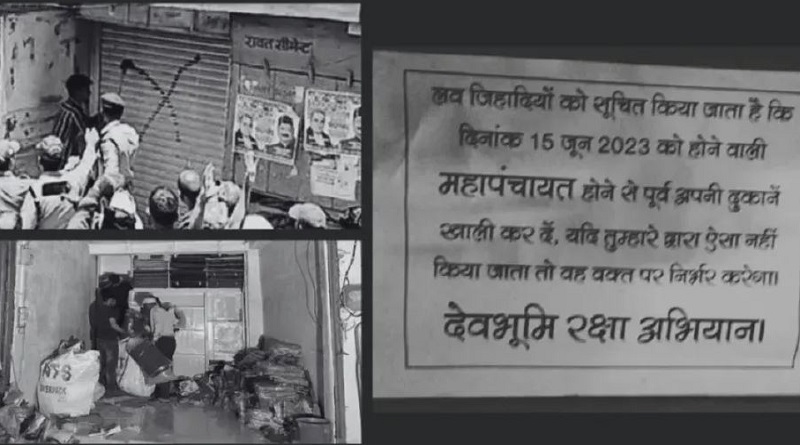 रावत सीमेन्ट
लव जिहादियों को सूचित किया जाता है कि
दिनांक 15 जून 2023 को होने वाली
महापंचायत होने से पूर्व अपनी दुकानें
खाली कर दें, यदि तुम्हारे द्वारा ऐसा नहीं
किया जाता तो वह वक्त पर निर्भर करेगा।
देवभूमि रक्षा अभियान।